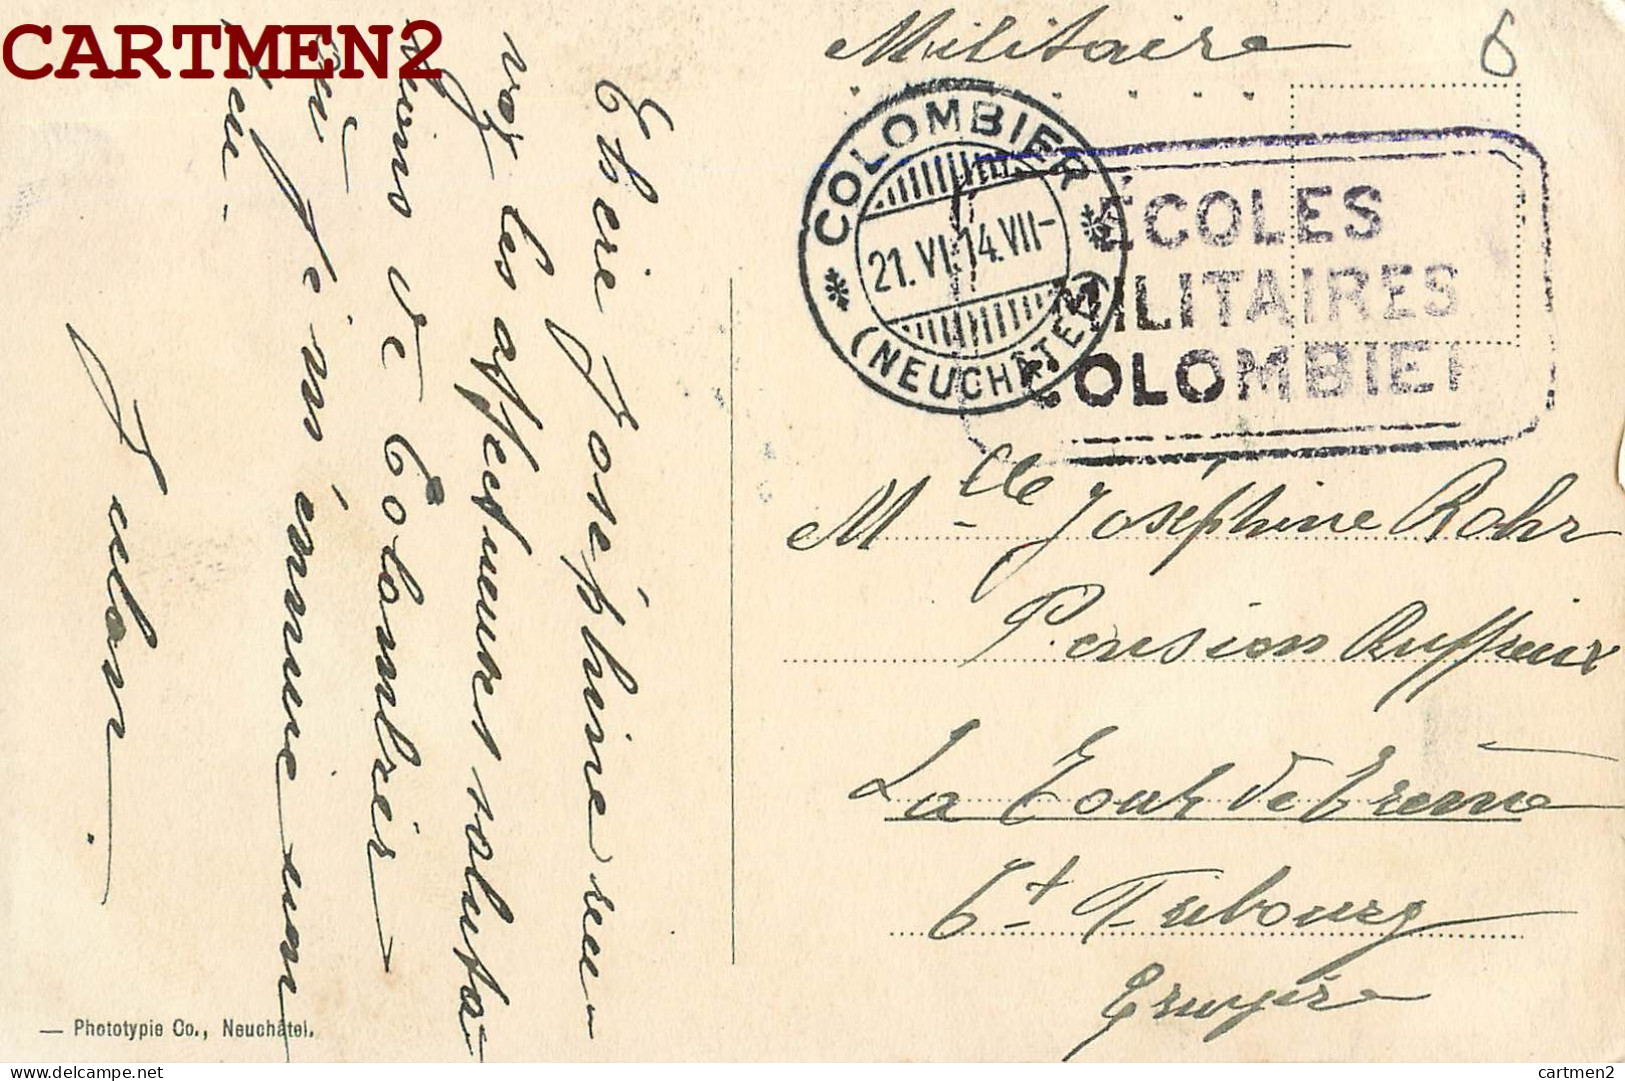 CARTMEN2
Militaire
6
COLOMBIER
21.VI.14.VII-
(NEUCHÂTEL)
ÉCOLES
MILITAIRES
COLOMBIER
Mlle Joséphine Rohr
Pension Ruffieux
La Tour de Trême
Ct Fribourg
Gruyère
Chère Joséphine rece-
vez les affectueuses saluta-
tions de Colombier
où je m'ennuie un
peu.
— Phototypie Co., Neuchâtel.
delcampe.net
cartmen2